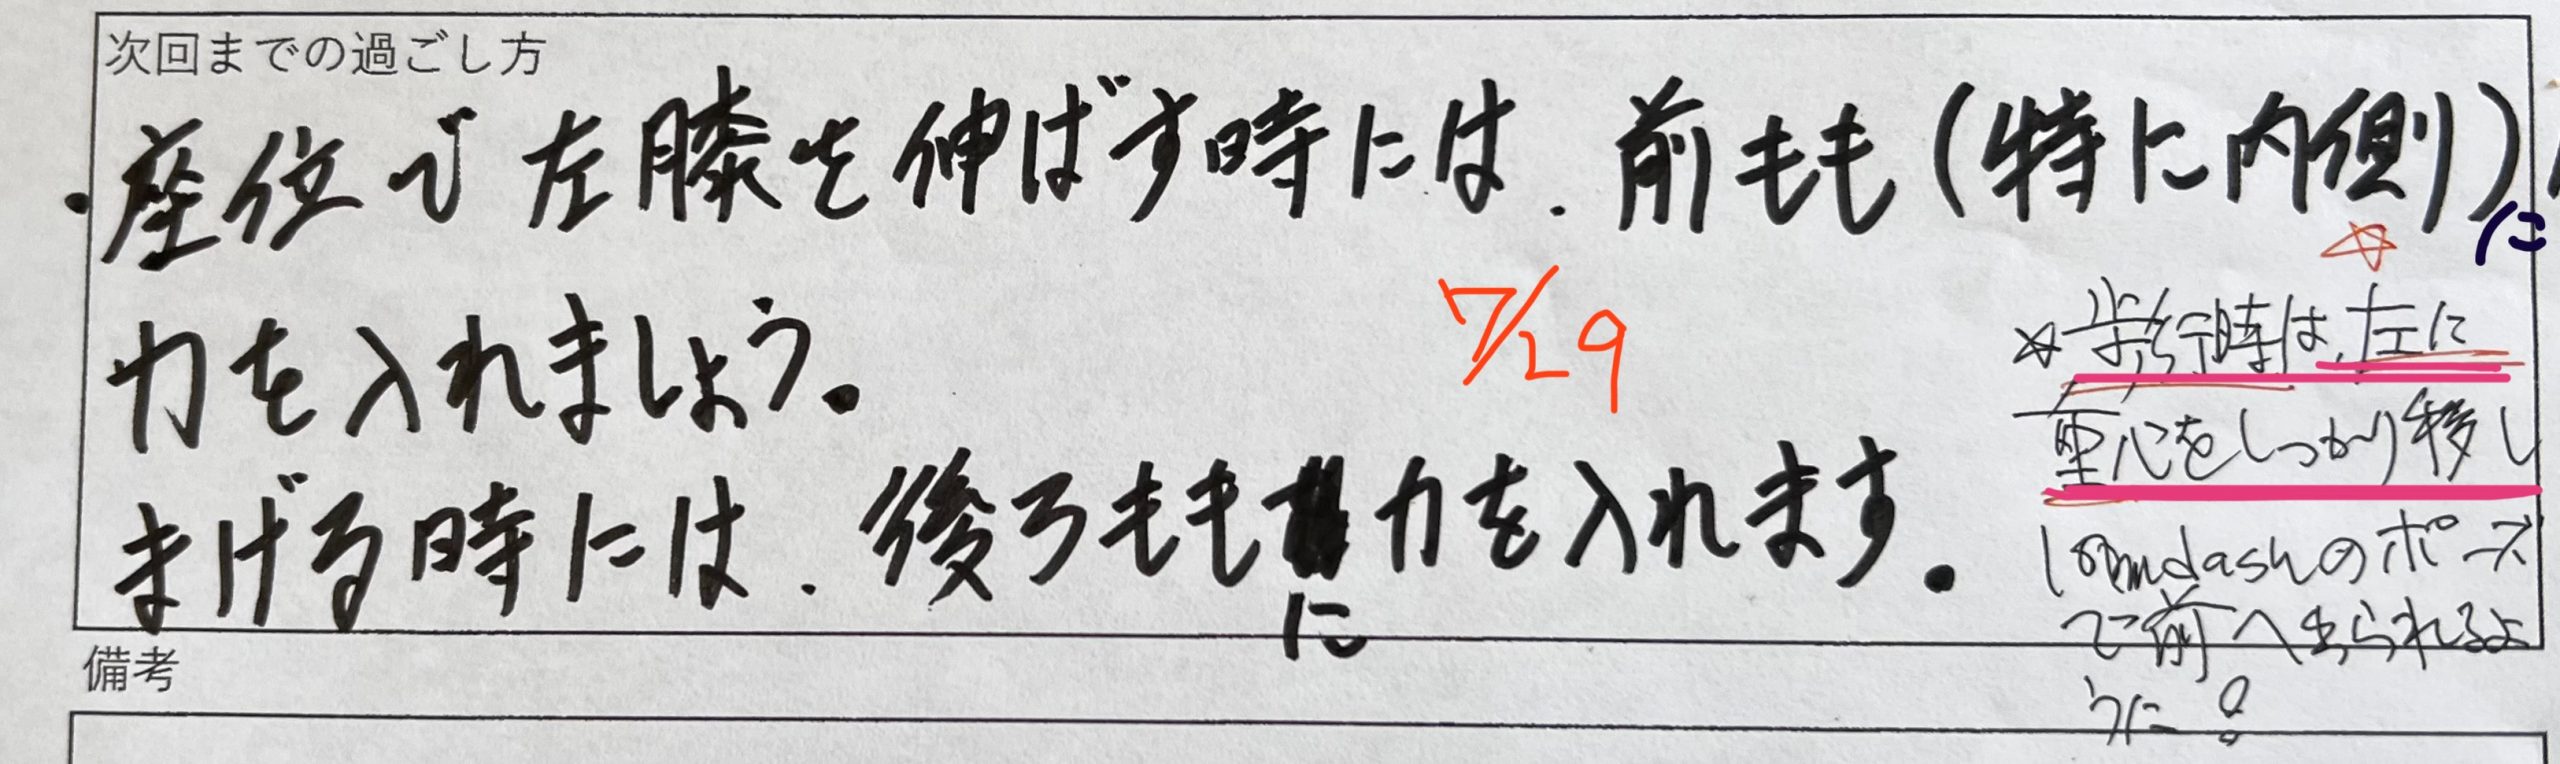 次回までの過ごし方
・座位で左膝を伸ばす時には、前もも(特に内側)に
力を入れましょう。
7/29
まげる時には、後ろももに力を入れます。
☆歩行時は、左に
重心をしっかり移し
100mdashのポーズ
で前へ出られるよ
うに!
備考